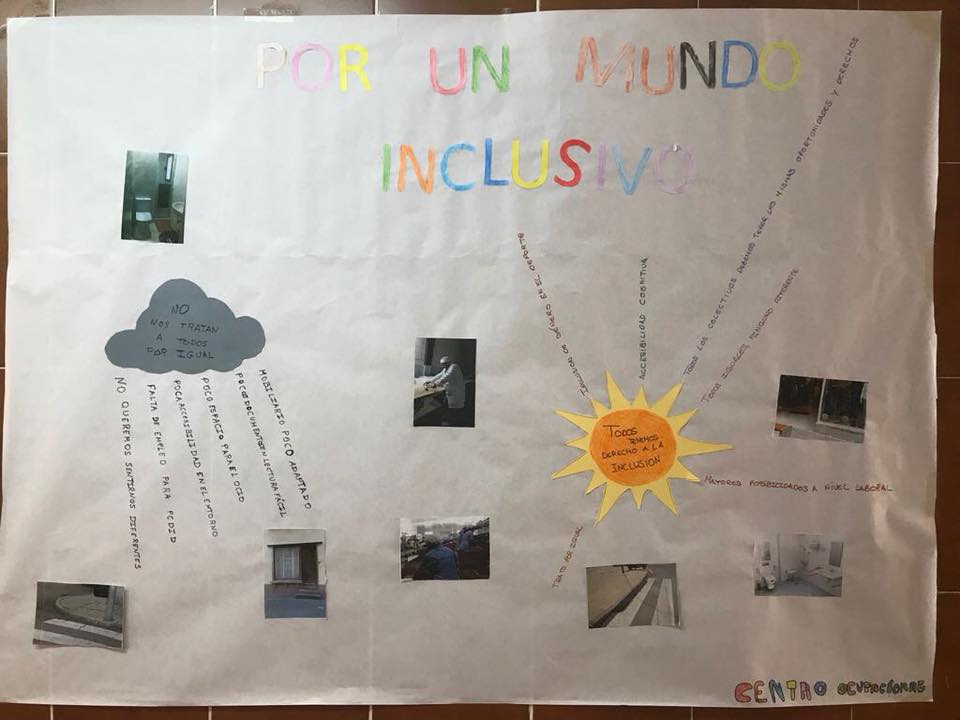 POR UN MUNDO
INCLUSIVO
NO
NOS TRATAN
A TODOS
POR IGUAL
NO QUEREMOS SENTIRNOS DIFERENTES
FALTA DE EMPLEO PARA PCDID
POCA ACCESIBILIDAD EN EL ENTORNO
POCO ESPACIO PARA EL OCIO
POCOS DOCUMENTOS EN LECTURA FÁCIL
MOBILIARIO POCO ADAPTADO
TODOS
TENEMOS
DERECHO A LA
INCLUSIÓN
INCLUSIÓN DE GÉNERO EN EL DEPORTE
ACCESIBILIDAD COGNITIVA
TODOS LOS COLECTIVOS DEBEMOS TENER LAS MISMAS OPORTUNIDADES Y DERECHOS
TODOS IGUALES, NINGUNO DIFERENTE
MAYORES POSIBILIDADES A NIVEL LABORAL
TRATO POR IGUAL
CENTRO OCUPACIONAL